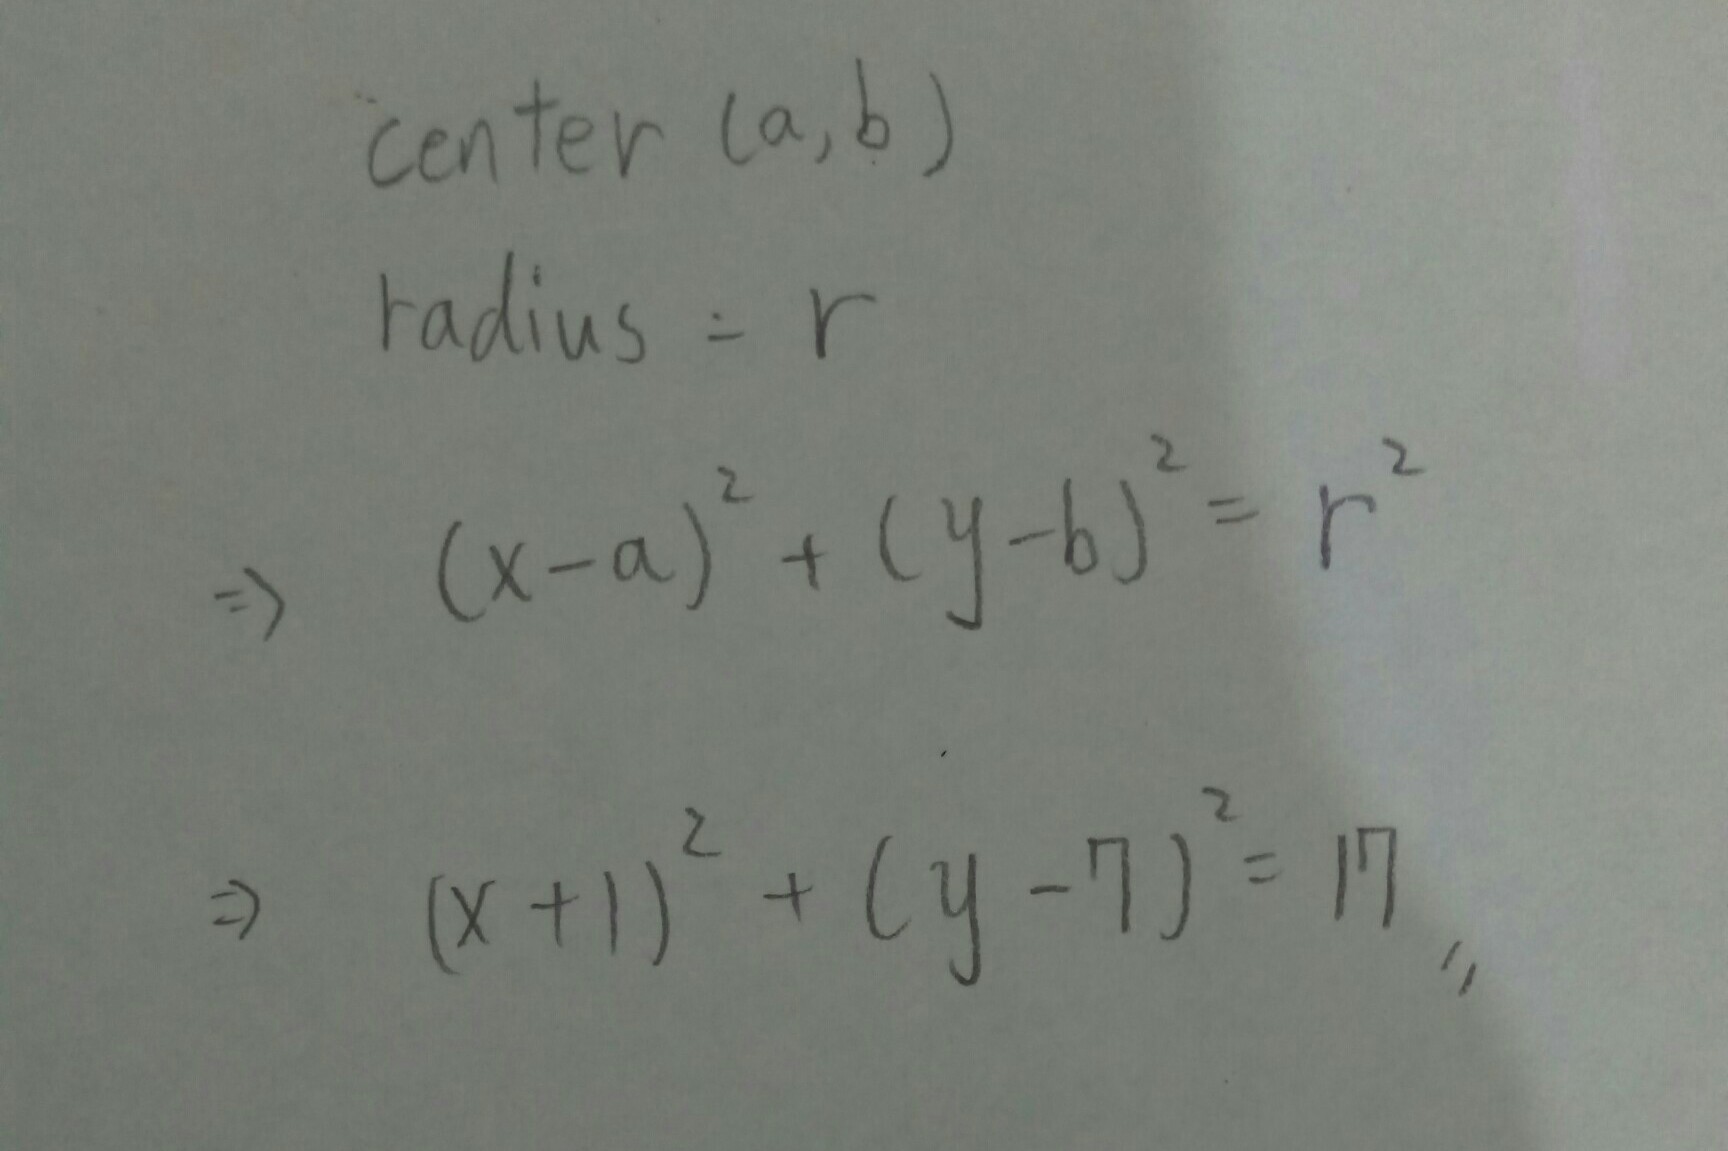 center (a, b)
radius = r
⇒ (x-a)² + (y-b)² = r²
⇒ (x+1)² + (y-7)² = 17 〃